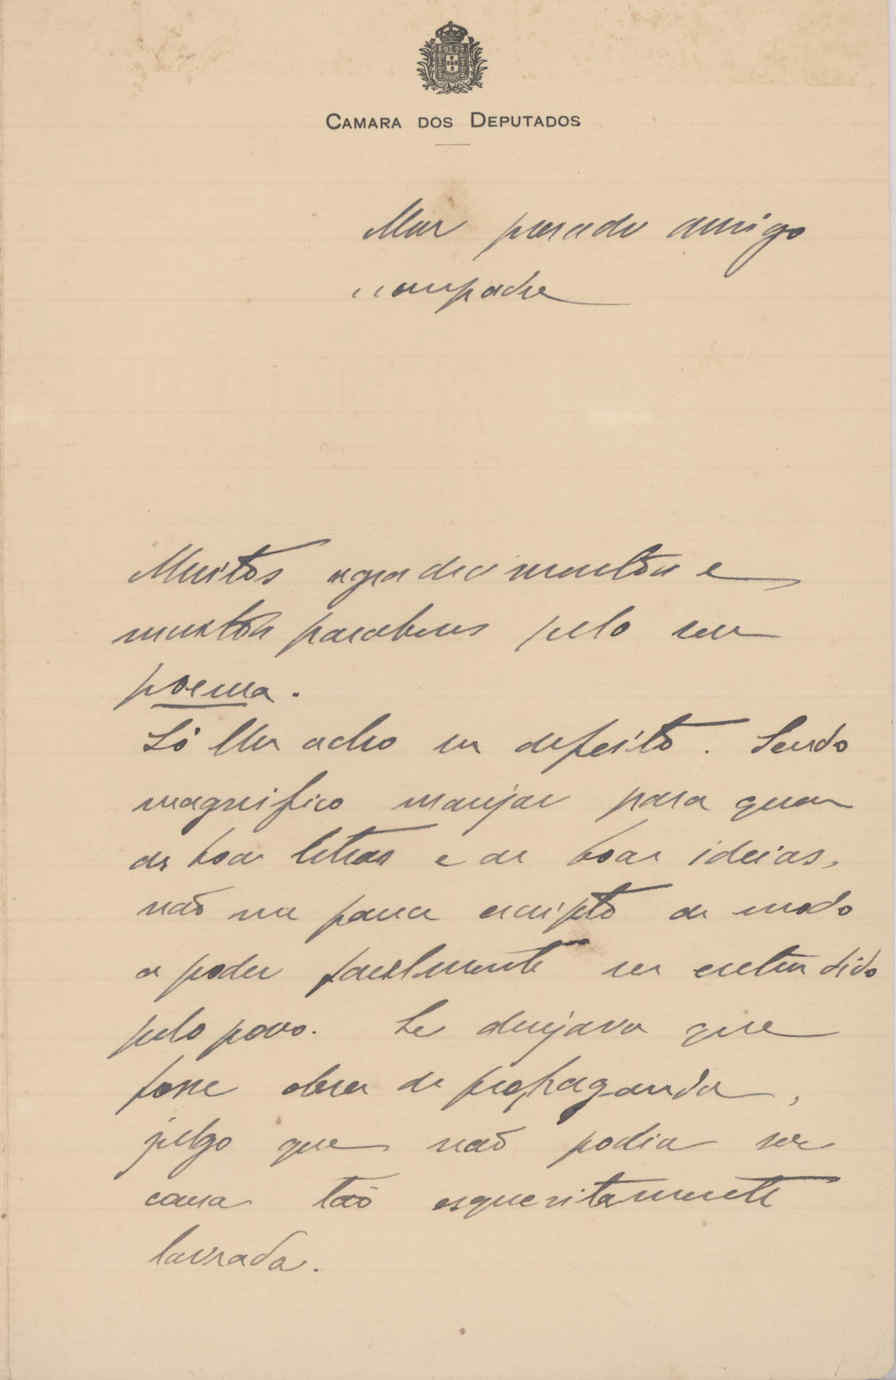 CAMARA DOS DEPUTADOS
Meu presado amigo
e compadre
Muitos agradecimentos e
muitos parabens pelo seu
poema.
Só lhe acho um defeito. Sendo
magnifico manjar para quem
de boas letras e de boas ideias,
não me parece escripto de modo
a poder facilmente ser entendido
pelo povo. Se desejava que
fosse obra de propaganda,
julgo que não podia ser
cousa tão esquesitamente
lavrada.